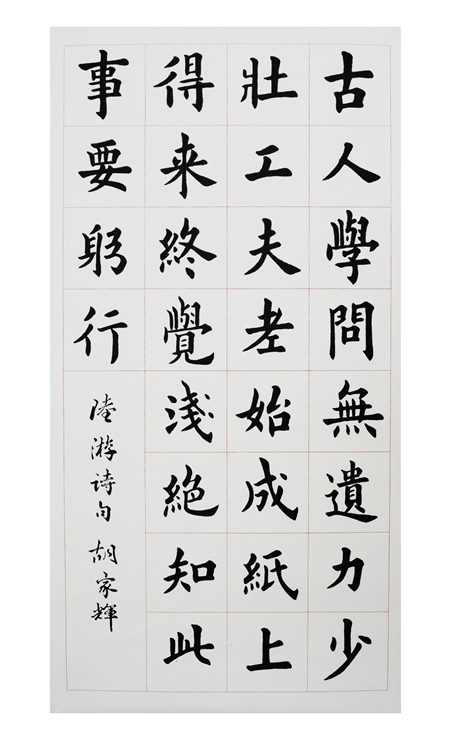 古人學問無遺力少
壯工夫老始成紙上
得来終覺淺絕知此
事要躬行
陸游詩句 胡家輝